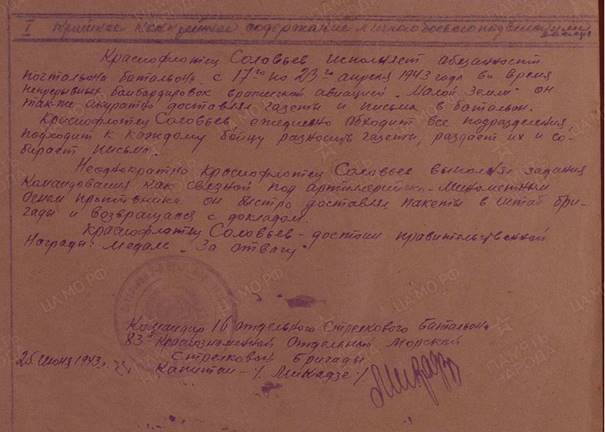 I Краткое конкретное содержание личного боевого подвига или заслуг
Краснофлотец Соловьев исполняет абезанност
постальона батальона. с 17го по 23го апреля 1943 года во время
непрерывных бомбардировок вражеской авиацией „Малой Земли" он
также акуратно доставлял газеты и письма в батальон.
Краснофлотец Соловьев ежедневно обходит все подразделения,
подходит к каждому бойцу разносит газеты, раздает их и со-
бирает письма.
Неоднократно Краснофлотец Соловьев выполнял задания
Командования как связной под артиллерийско-минометным
огнем противника он быстро доставлял пакеты в штаб бри-
гады и возвращался с докладом.
Краснофлотец Соловьев - достоин правительственной
Награды: медаль „За отвагу"
Командир 16 отдельного Стрелкового батальона
83й Краснознаменной Отдельной Морской
Стрелковой бригады
25 июня 1943 г.
Капитан - /. Микадзе ./
ЦАМО.РФ